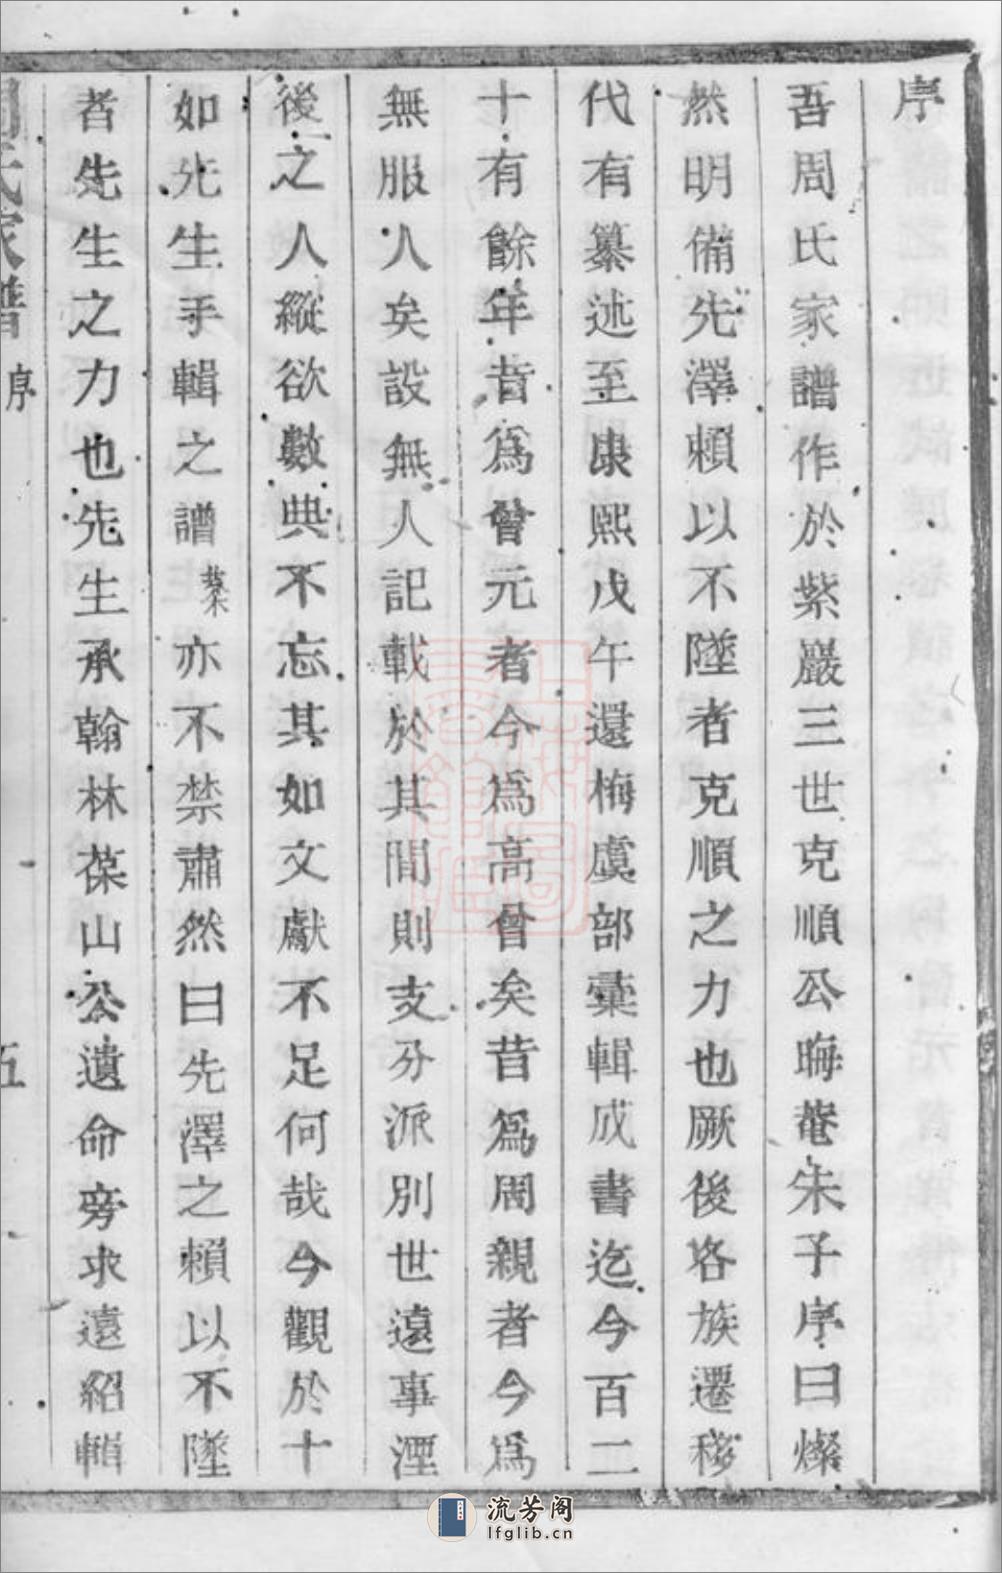 序
吾周氏家譜作於紫巖三世克順公晦菴朱子序曰燦
然明備先澤賴以不墜者克順之力也厥後各族遷移
代有纂述至康熙戊午還梅虞部彙輯成書迄今百二
十有餘年昔爲曾元者今爲高曾矣昔爲周親者今爲
無服人矣設無人記載於其間則支分派別世遠事湮
後之人縱欲數典不忘其如文獻不足何哉今觀於十
如先生手輯之譜棻亦不禁肅然曰先澤之賴以不墜
者先生之力也先生承翰林葆山公遺命旁求遠紹輯
周氏家譜
序
五
流芳阁
lfglib.cn